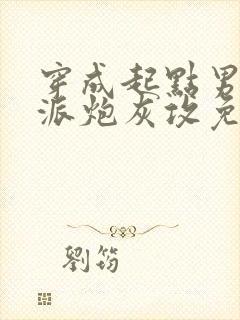 穿成起點男
派炮灰攻免
劉筠